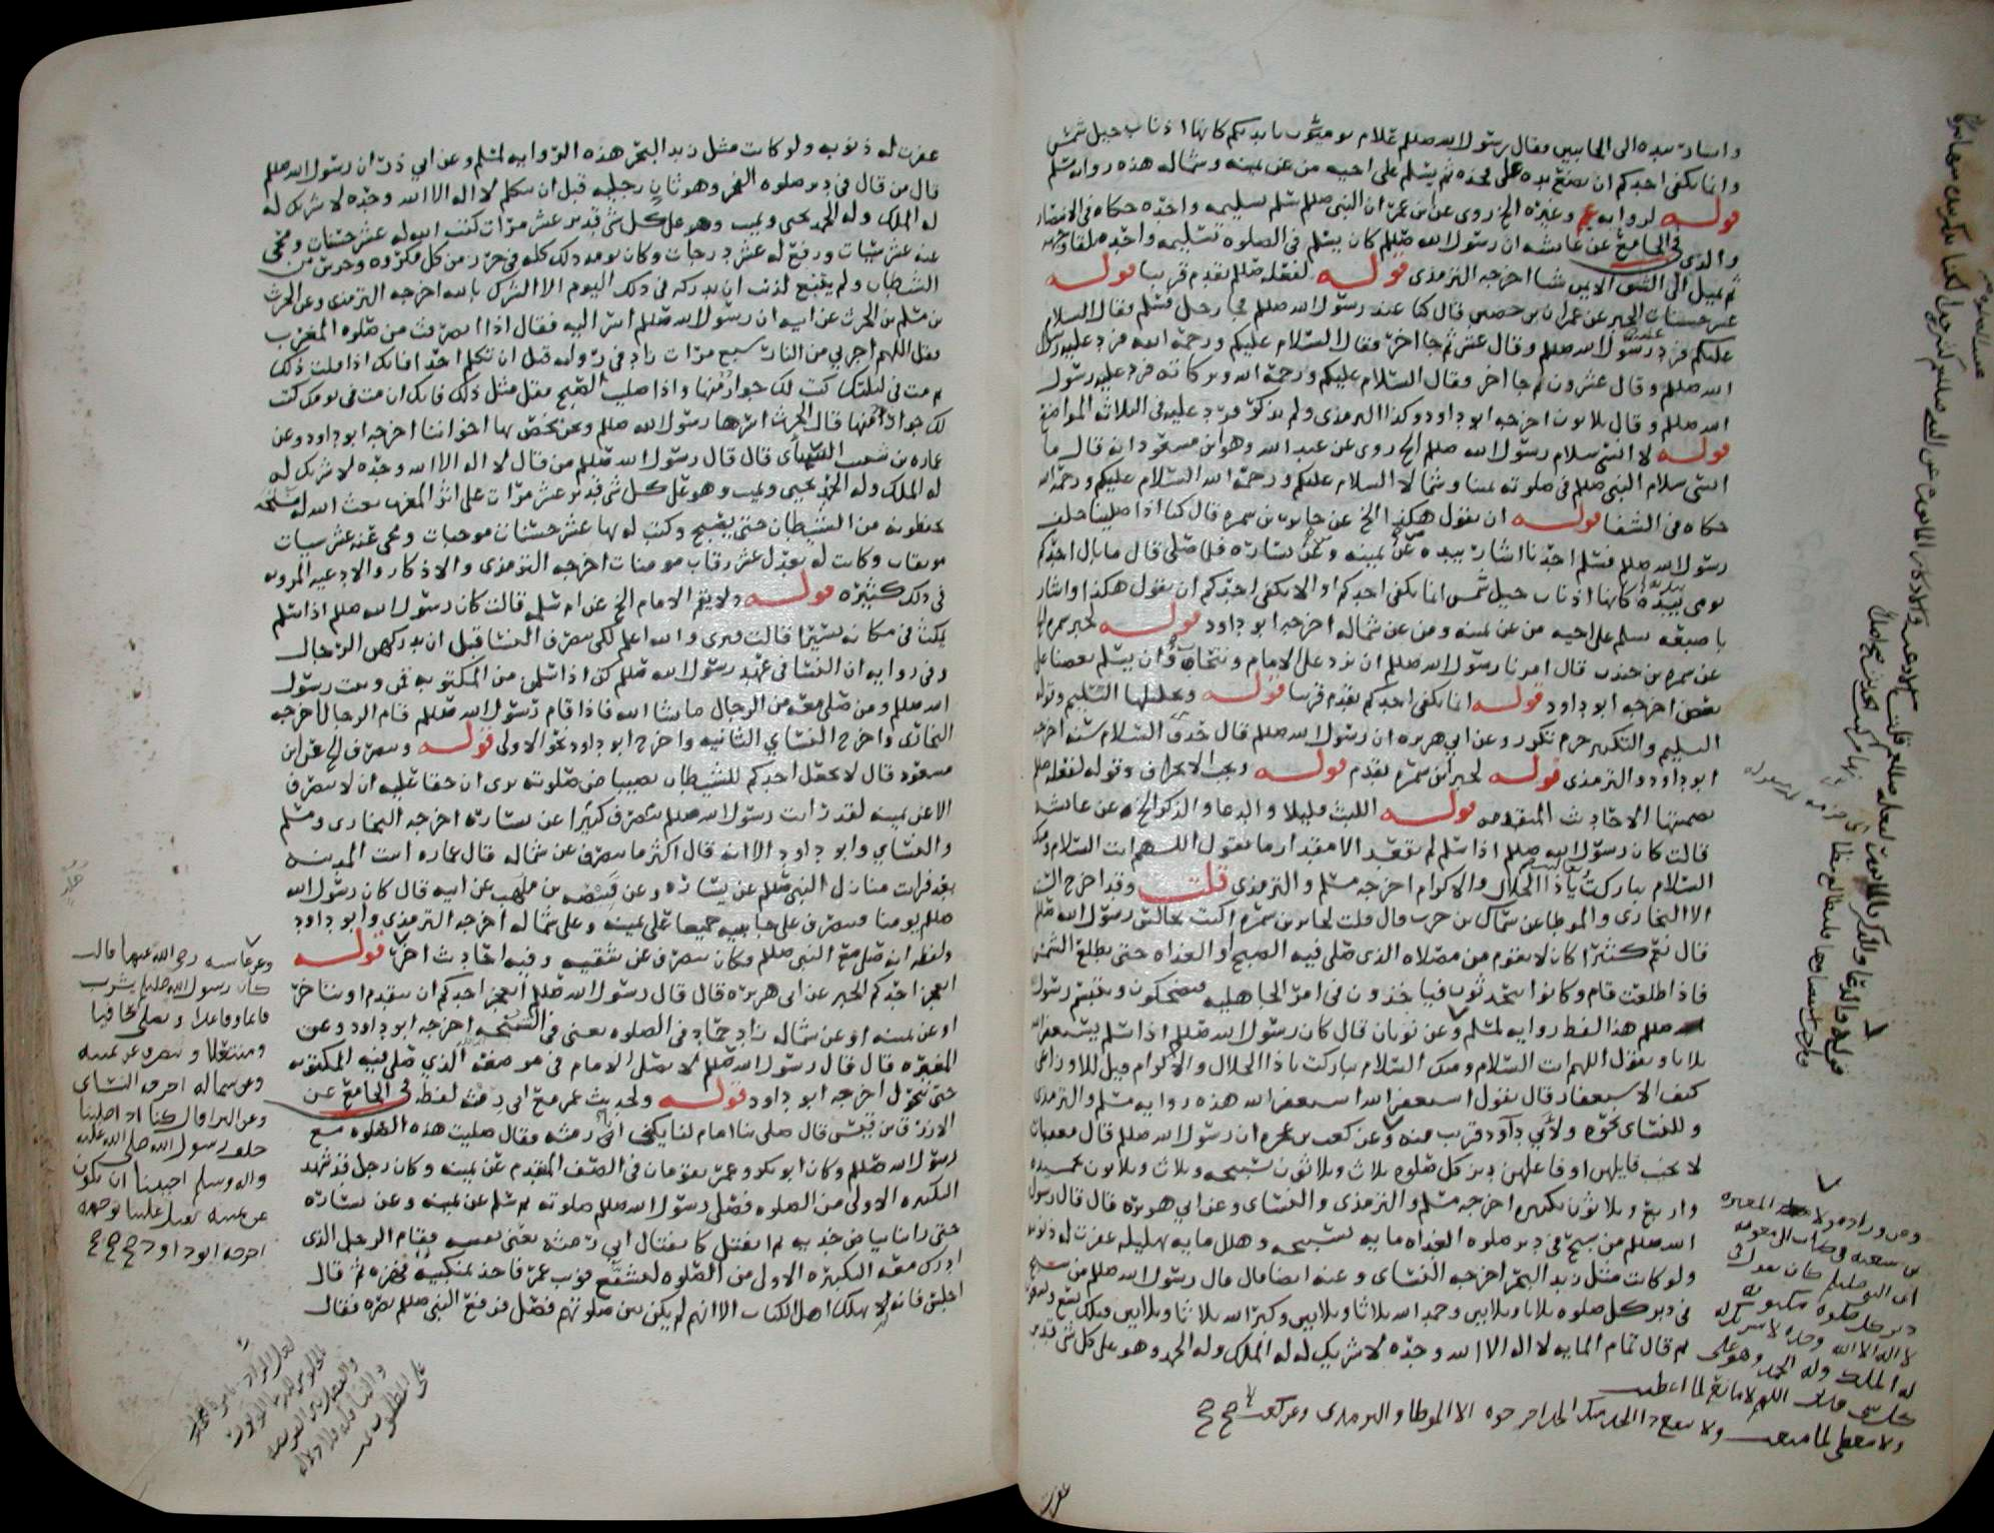 واشار بيده الى الجانبين فقال رسول الله صللم غلام تومئون بايديكم كانها اذناب خيل شمس
وانما يكفي احدكم ان يضع يده على فخذه ثم يسلم على اخيه من عن يمينه وشماله هذه رواية مسلم
قوله لرواية وغيره الخ روي عن ابن عمر ان النبي صللم سلم تسليمه واحده حكاه في الانتصار
والذي في الجامع عن عائشه ان رسول الله صللم كان يسلم في الصلوه تسليمه واحده تلقا وجهه
ثم يميل الى الشق الايمن شيا اخرجه الترمذي قوله لفعله صللم تقدم قريبا قوله
عشر حسنات الخبر عن عمران بن حصين قال كنا عند رسول الله صللم فجا رجل فسلم فقال السلام
عليكم فرد رسول الله صللم وقال عشر ثم جا اخر فقال السلام عليكم ورحمة الله فرد عليه رسول
الله صللم وقال عشرون ثم جا اخر وقال السلام عليكم ورحمة الله وبركاته فرد عليه رسول
الله صللم وقال ثلاثون اخرجه ابو داود وكذا الترمذي ولم يذكر فرد عليه في الثلاثه المواضع
قوله لا انسى سلام رسول الله صللم الخ روي عن عبد الله وهو ابن مسعود انه قال ما
انسى سلام النبي صللم في صلوته يمينا وشمالا السلام عليكم ورحمة الله السلام عليكم ورحمة الله
حكاه في الشفا قوله ان يقول هكذا الخ عن جابر بن سمره قال كنا اذا صلينا خلف
رسول الله صللم فسلم احدنا اشار بيده عن يمينه وعن يساره فلما صلى قال ما بال احدكم
يومي بيده كانها اذناب خيل شمس انما يكفي احدكم او الا يكفي احدكم ان يقول هكذا واشار
باصبعه يسلم على اخيه من عن يمينه ومن عن شماله اخرجه ابو داود قوله لخبر سمره
عن سمره بن جندب قال امرنا رسول الله صللم ان نرد على الامام ونتحاب وان يسلم بعضنا على
بعض اخرجه ابو داود قوله انما يكفي احدكم تقدم قريبا قوله وتحليلها التسليم وقوله
التسليم والتكبير جزم تكرر وعن ابي هريره ان رسول الله صللم قال حذف السلام سنه اخرجه
ابو داود والترمذي قوله لخبر ابن سمره تقدم قوله وجب الانحراف وقوله لفعله صللم
تضمنتها الاحاديث المتقدمه قوله اللبث قليلا والدعا والذكر الخ عن عائشه
قالت كان رسول الله صللم اذا سلم لم يقعد الا مقدار ما يقول اللهم انت السلام ومنك
السلام تباركت يا ذا الجلال والاكرام اخرجه مسلم والترمذي قلت وقد اخرج الستة
الا البخاري والموطا عن سماك بن حرب قال قلت لجابر بن سمره اكنت تجالس رسول الله صللم
قال نعم كثيرا كان لا يقوم من مصلاه الذي صلى فيه الصبح او الغداه حتى تطلع الشمس
فاذا طلعت قام وكانوا يتحدثون فياخذون في امر الجاهليه فيضحكون ويتبسم رسول
صللم هذا لفظ رواية لمسلم وعن ثوبان قال كان رسول الله صللم اذا سلم يستغفر الله
ثلاثا ويقول اللهم انت السلام ومنك السلام تباركت يا ذا الجلال والاكرام قيل للاوزاعي
كيف الاستغفار قال يقول استغفر الله استغفر الله هذه رواية مسلم والترمذي
وللنسائي نحوه ولابي داود قريب منه وعن كعب بن عجره ان رسول الله صللم قال معقبات
لا يخيب قايلهن او فاعلهن دبر كل صلوه ثلاث وثلاثون تسبيحه وثلاث وثلاثون تحميده
واربع وثلاثون تكبيره اخرجه مسلم والترمذي والنسائي وعن ابي هريره قال قال رسول
الله صللم من سبح في دبر صلوه الغداه مايه تسبيحه وهلل مايه تهليله غفرت له ذنوبه
ولو كانت مثل زبد البحر اخرجه النسائي وعنه ايضا قال قال رسول الله صللم من سبح
في دبر كل صلوه ثلاثا وثلاثين وحمد الله ثلاثا وثلاثين وكبر الله ثلاثا وثلاثين فتلك تسع وتسعون
ثم قال تمام المايه لا اله الا الله وحده لا شريك له له الملك وله الحمد وهو على كل شي قدير
وعن وراد مولا المغيره
بن شعبه في كتاب الى معويه
ان النبي صللم كان يقول في
دبر كل صلوه مكتوبه
لا اله الا الله وحده لا شريك له
له الملك وله الحمد وهو على
كل شي قدير اللهم لا مانع لما اعطيت
ولا معطي لما منعت ولا ينفع ذا الجد منك الجد اخرجوه الا الموطا والترمذي وعن كعب
غفرت
غفرت له ذنوبه ولو كانت مثل زبد البحر هذه الرواية لمسلم وعن ابي ذر ان رسول الله صللم
قال من قال في دبر صلوه الفجر وهو ثان رجليه قبل ان يتكلم لا اله الا الله وحده لا شريك له
له الملك وله الحمد يحيي ويميت وهو على كل شي قدير عشر مرات كتب الله له عشر حسنات ومحي
عنه عشر سيئات ورفع له عشر درجات وكان يومه ذلك كله في حرز من كل مكروه وحرس من
الشيطان ولم ينبغ لذنب ان يدركه في ذلك اليوم الا الشرك بالله اخرجه الترمذي وعن الحرث
بن مسلم بن الحرث عن ابيه ان رسول الله صللم اسر اليه فقال اذا انصرفت من صلوه المغرب
فقل اللهم اجرني من النار سبع مرات زاد في رواية قبل ان تكلم احدا فانك اذا قلت ذلك
ثم مت في ليلتك كتب لك جوار منها واذا صليت الصبح فقل مثل ذلك فانك ان مت في يومك كتب
لك جوار منها قال الحرث اسرها رسول الله صللم ونحن نخص بها اخواننا اخرجه ابو داود وعن
عماره بن شبيب السبائي قال قال رسول الله صللم من قال لا اله الا الله وحده لا شريك له
له الملك وله الحمد يحيي ويميت وهو على كل شي قدير عشر مرات على اثر المغرب بعث الله له مسلحه
يحفظونه من الشيطان حتى يصبح وكتب له بها عشر حسنات موجبات ومحي عنه عشر سيئات
موبقات وكانت له بعدل عشر رقاب مومنات اخرجه الترمذي والاذكار والادعيه المرويه
في ذلك كثيره قوله ولا يقم الامام الخ عن ام سلمه قالت كان رسول الله صللم اذا سلم
يمكث في مكانه يسيرا قالت فنرى والله اعلم لكي ينصرف النسا قبل ان يدركهن الرجال
وفي رواية ان النسا في عهد رسول الله صللم كن اذا سلمن من المكتوبه قمن وثبت رسول
الله صللم ومن صلى معه من الرجال ما شا الله فاذا قام رسول الله صللم قام الرجال اخرجه
البخاري واخرج النسائي الثانيه واخرج ابو داود نحو الاولى قوله وينصرف الخ عن ابن
مسعود قال لا يجعل احدكم للشيطان نصيبا من صلوته يرى ان حقا عليه ان لا ينصرف
الا عن يمينه لقد رايت رسول الله صللم ينصرف كثيرا عن يساره اخرجه البخاري ومسلم
والنسائي وابو داود الا انه قال اكثر ما ينصرف عن شماله قال عماره اتيت المدينه
بعد فرايت منازل النبي صللم عن يساره وعن قبيصه بن هلب عن ابيه قال كان رسول الله
صللم يومنا فينصرف على جانبيه جميعا على يمينه وعلى شماله اخرجه الترمذي وابو داود
ولفظه انه صلى مع النبي صللم وكان ينصرف عن شقيه وفيه احاديث اخر قوله
ايعجز احدكم الخبر عن ابي هريره قال قال رسول الله صللم ايعجز احدكم ان يتقدم او يتاخر
او عن يمينه او عن شماله زاد حماد في الصلوه يعني في السبحه اخرجه ابو داود وعن
المغيره قال قال رسول الله صللم لا يصل الامام في موضعه الذي صلى فيه المكتوبه
حتى يتحول اخرجه ابو داود قوله ولحديث عمر مع ابي رمثه لفظه في الجامع عن
الازرق بن قيس قال صلى بنا امام لنا يكنى ابا رمثه فقال صليت هذه الصلوه مع
رسول الله صللم وكان ابو بكر وعمر يقومان في الصف المقدم عن يمينه وكان رجل قد شهد
التكبيره الاولى من الصلوه فصلى رسول الله صللم صلوته ثم سلم عن يمينه وعن يساره
حتى راينا بياض خديه ثم انفتل كانفتال ابي رمثه يعني نفسه فقام الرجل الذي
ادرك معه التكبيره الاولى من الصلوه ليشفع فوثب عمر فاخذ بمنكبيه فهزه ثم قال
اجلس فانه لم يهلك اهل الكتاب الا انهم لم يكن بين صلوتهم فصل فرفع النبي صللم بصره فقال
وعن عائشه رضي الله عنها قالت
كان رسول الله صللم يشرب
قائما وقاعدا ويصلي حافيا
ومنتعلا وينصرف عن يمينه
وعن شماله اخرجه النسائي
وعن البرا قال كنا اذا صلينا
خلف رسول الله صلى الله عليه
واله وسلم احببنا ان نكون
عن يمينه يقبل علينا بوجهه
اخرجه ابو داود